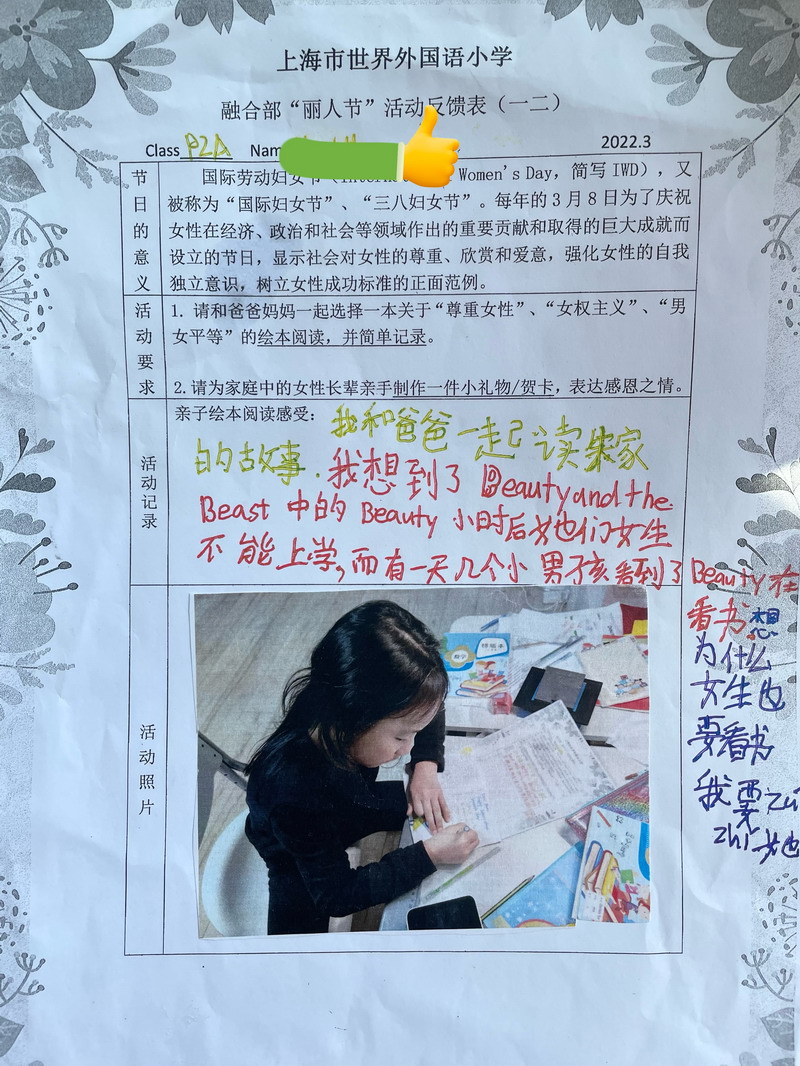 上海市世界外国语小学
融合部“丽人节”活动反馈表（一二）
Class P2A Nam 2022.3
节日的意义
国际劳动妇女节（Internat Women's Day，简写 IWD），又
被称为“国际妇女节”、“三八妇女节”。每年的 3 月 8 日为了庆祝
女性在经济、政治和社会等领域作出的重要贡献和取得的巨大成就而
设立的节日，显示社会对女性的尊重、欣赏和爱意，强化女性的自我
独立意识，树立女性成功标准的正面范例。
活动要求
1. 请和爸爸妈妈一起选择一本关于“尊重女性”、“女权主义”、“男
女平等”的绘本阅读，并简单记录。
2.请为家庭中的女性长辈亲手制作一件小礼物/贺卡，表达感恩之情。
活动记录
亲子绘本阅读感受：
我和爸爸一起读宋家
的故事.我想到了 Beauty and the
Beast 中的 Beauty 小时后她们女生
不能上学，而有一天几个小男孩看到了 Beauty 在
看书想
为什么
女生也
要看书
我要zu
zhi她
活动照片